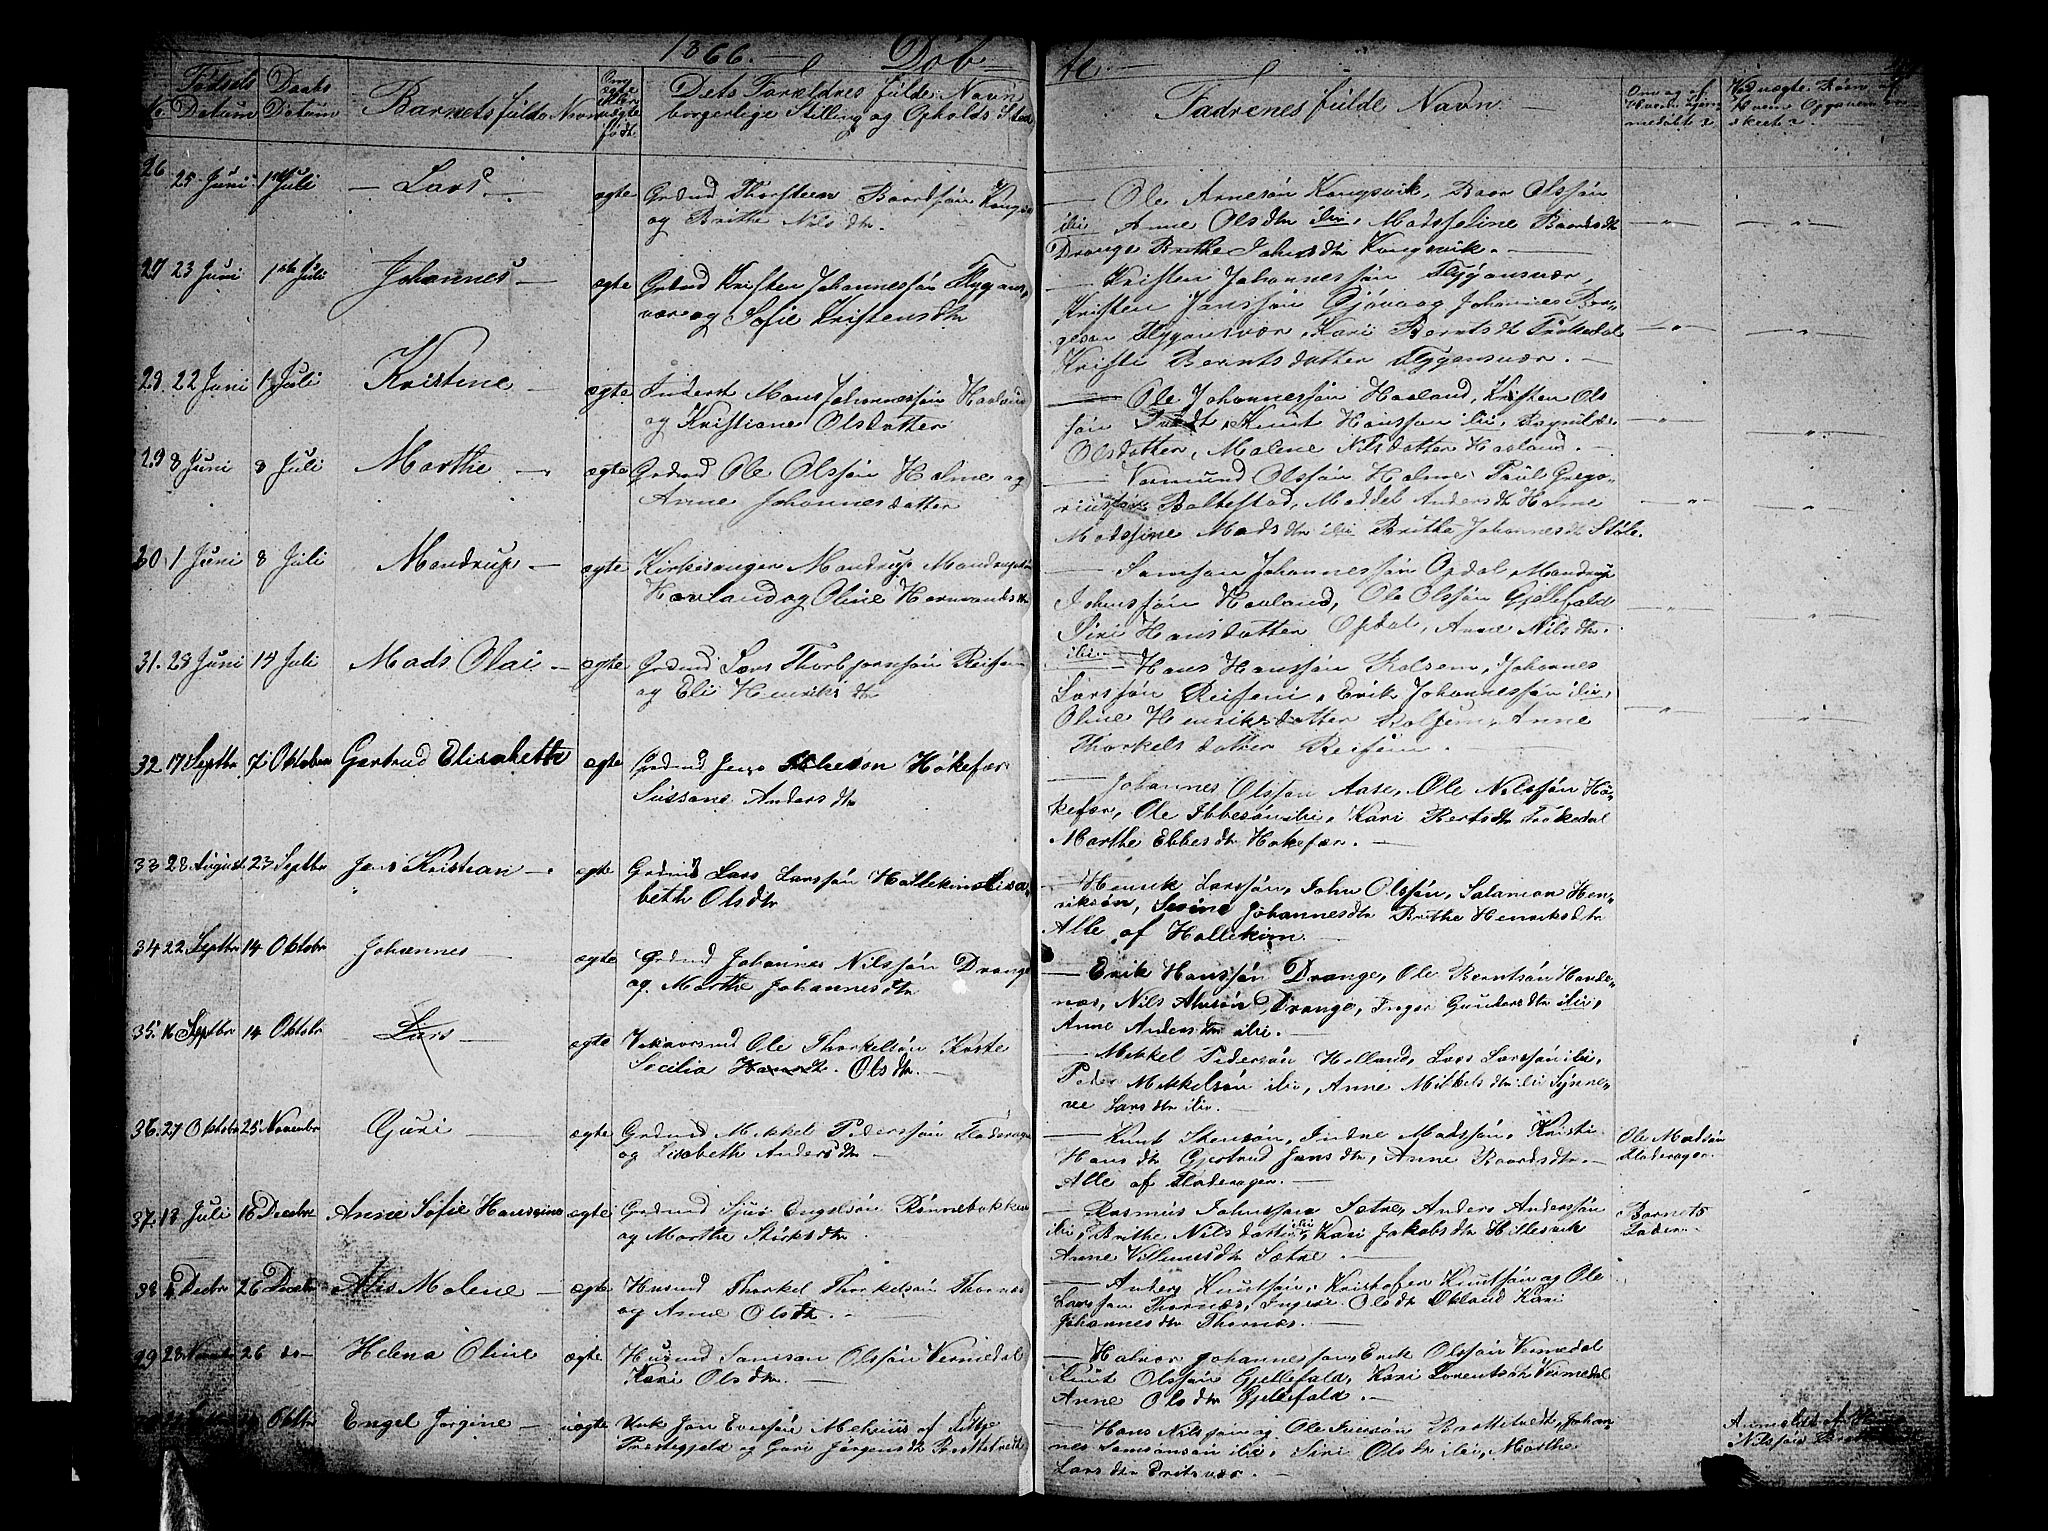 1866. Döb te.
No
Fødsels Datum
Daabs Datum
Barnets fulde Navn
Om ægte eller uægte født
Dets Foreldres fulde Navn borgerlige Stilling og Opholds Sted
Fadrenes fulde Navn
26 25 Juni 1 Juli Lars ægte Grdmd Thorsteen Baardsön Kongsv
og Brithe Nils dtr
Ole Arnesön Kongsvik, Baar Olssön
ibi Anne Ols dtr ibi, Madsseline Baards dtr
Drange Brithe Johns dtr Kongsvik.
27 23 Juni 1ste Juli Johannes ægte Grdmd Kristen Johannessön Flygans
vær og Sofie Kristens dtr
Kristen Johannessön Flygansvær,
Kristen Janssön Gjövaag Johannes Bør-
gesen Flygansvær, Kari Bernts dtr Trækedal
Kristi Berntsdatter Flygansvær.
28. 22 Juni 1 Juli Kristine ægte Inderst Mons Johannessön Haaland
og Kristiane Olsdatter
Ole Johannessön Haaland, Kristen Ols
sön Tvedt, Knut Hanssön ibi, Ragnilde
Olsdatter, Malene Nilsdatter Haaland.
29 8 Juni 8 Juli Marthe ægte Grdmd Ole Olssön Holme og
Anne Johannesdatter
Vermund Olssön Holme Poul Grego-
riussön Baltestad, Maddel Anders dtr Holme
Madssine Mads dtr ibi Brithe Johannes dtr Støle.
30 1 Juni 8 Juli Mandrup ægte Kirkesanger Mandrup Mandrupsön
Havland og Oline Hermands dtr
Samson Johannessön Opdal, Mandrup
Johnssön Havland, Ole Olssön Gjellefald
Siri Hansdatter Opdal, Anne Nils dtr.
ibi
31. 28 Juni 15 Juli Mads Olai ægte Grdmd Lars Thorbjørnsön Reisem
og Eli Henriks dtr
Hans Hanssön Rolsem, Johannes
Larssön Reisem, Erik Johannessön ibi,
Oline Henriksdatter Rolsem, Anne
Thorkelsdatter Reisem.
32 17 Septbr 7 Oktober Gertrud Elisabeth ægte Grdmd Jens Høkefær
Sussane Anders dtr
Johannes Olsson Aase, Ole Nilssön Hø-
kefær, Ole Ibbesön ibi, Kari Berts dtr Trækedal
Marthe Ebbes dtr Høkefær.
33 28 August 23 Septbr Jens Kristian ægte Grdmd Lars Larssön Hallekim Lisa-
beth Ols dtr
Henrik Larssön, John Olssön, Salamon Hen-
riksön, Sesine Johannes dtr Brithe Henriks dtr
Alle af Hallekim.
34 22 Septbr 14 Oktobr Johannes ægte Grdmd Johannes Nilssön Drange
og Marthe Johannes dtr
Erik Hanssön Drange, Ole Berntsön Havde-
næs, Nils Drange, Inger Gunders dtr ibi,
Anne Anders dtr ibi.
35. 16 Septbr 14 Oktobr Lars ægte Ole Thorkelsön Kaste
Secilia Ols dtr.
Mikkel Pedersön Holland, Lars Larssön ibi,
Peder Mikkelsön ibi, Anne Mikkels dtr ibi Synne-
ve Lars dtr ibi.
36. 27 Oktobr 25 Novembr Guri ægte Grdmd Mikkel Pederssön Fladerager
og Lisabeth Anders dtr
Knut Stensön, Sindre Madssön, Kristi
Hans dtr Gjertrud Jans dtr, Anne Baards dtr
Alle af Fladerager.
Ole Madsön
Fladerager.
37. 13 Juli 16 Decbr Anne Sofie Hansine ægte Grdmd Sjur Engelsön Rønnebakken
og Marthe Størks dtr
Rasmus Johnsson Sætre, Anders Anderssön
ibi, Brithe Nilsdatter ibi, Kari Jakobs dtr Hillesvik
Anne Villums dtr Sætre.
Barnets
Fader
38 Decbr 26 Decbr Alis Malene ægte Husmd Thorkel Thorkelsön Thornæs
og Anne Ols dtr.
Anders Knutsön, Kristofer Knutsön og Ole
Larsson Thornæs, Ingeri Ols dtr Økland Kari
Johannes dtr Thornæs.
39 28 Novbr 26 do Helena Oline ægte Husmd Samson Olssön Vermedal
Kari Ols dtr.
Halvor Johannesson, Erik Olssön Vermedal
Knut Olssön Gjellefald, Kari Lorents dtr Vermedal
Anne Ols dtr Gjellefald.
Oktbr Engel Jørgine uægte Unk Jon Eversön Melhuus af
Præstegjeld og Guri Jørgens dtr Brattetveit
Hans Nilssön og Ole Iversön Brattetvedt, Johan-
nes Samsonson ibi, Siri Ols dtr ibi, Marthe
Lars dtr
Anmeldt af
Nilssön